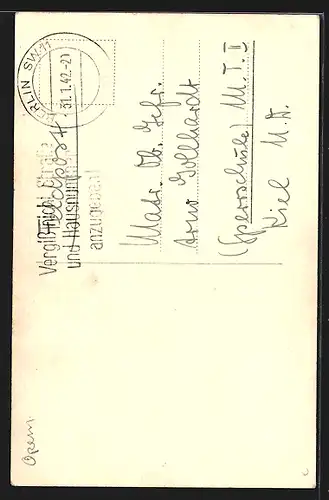 BERLIN SW 11
31.1.42.-21
Vergiß nicht Straße
und Hausnummer
anzugeben!
Feldpost
Matr. Ob. Gefr.
Arno Gollhardt
(Sperrschule) M.T.II
Kiel M.A.
Opern